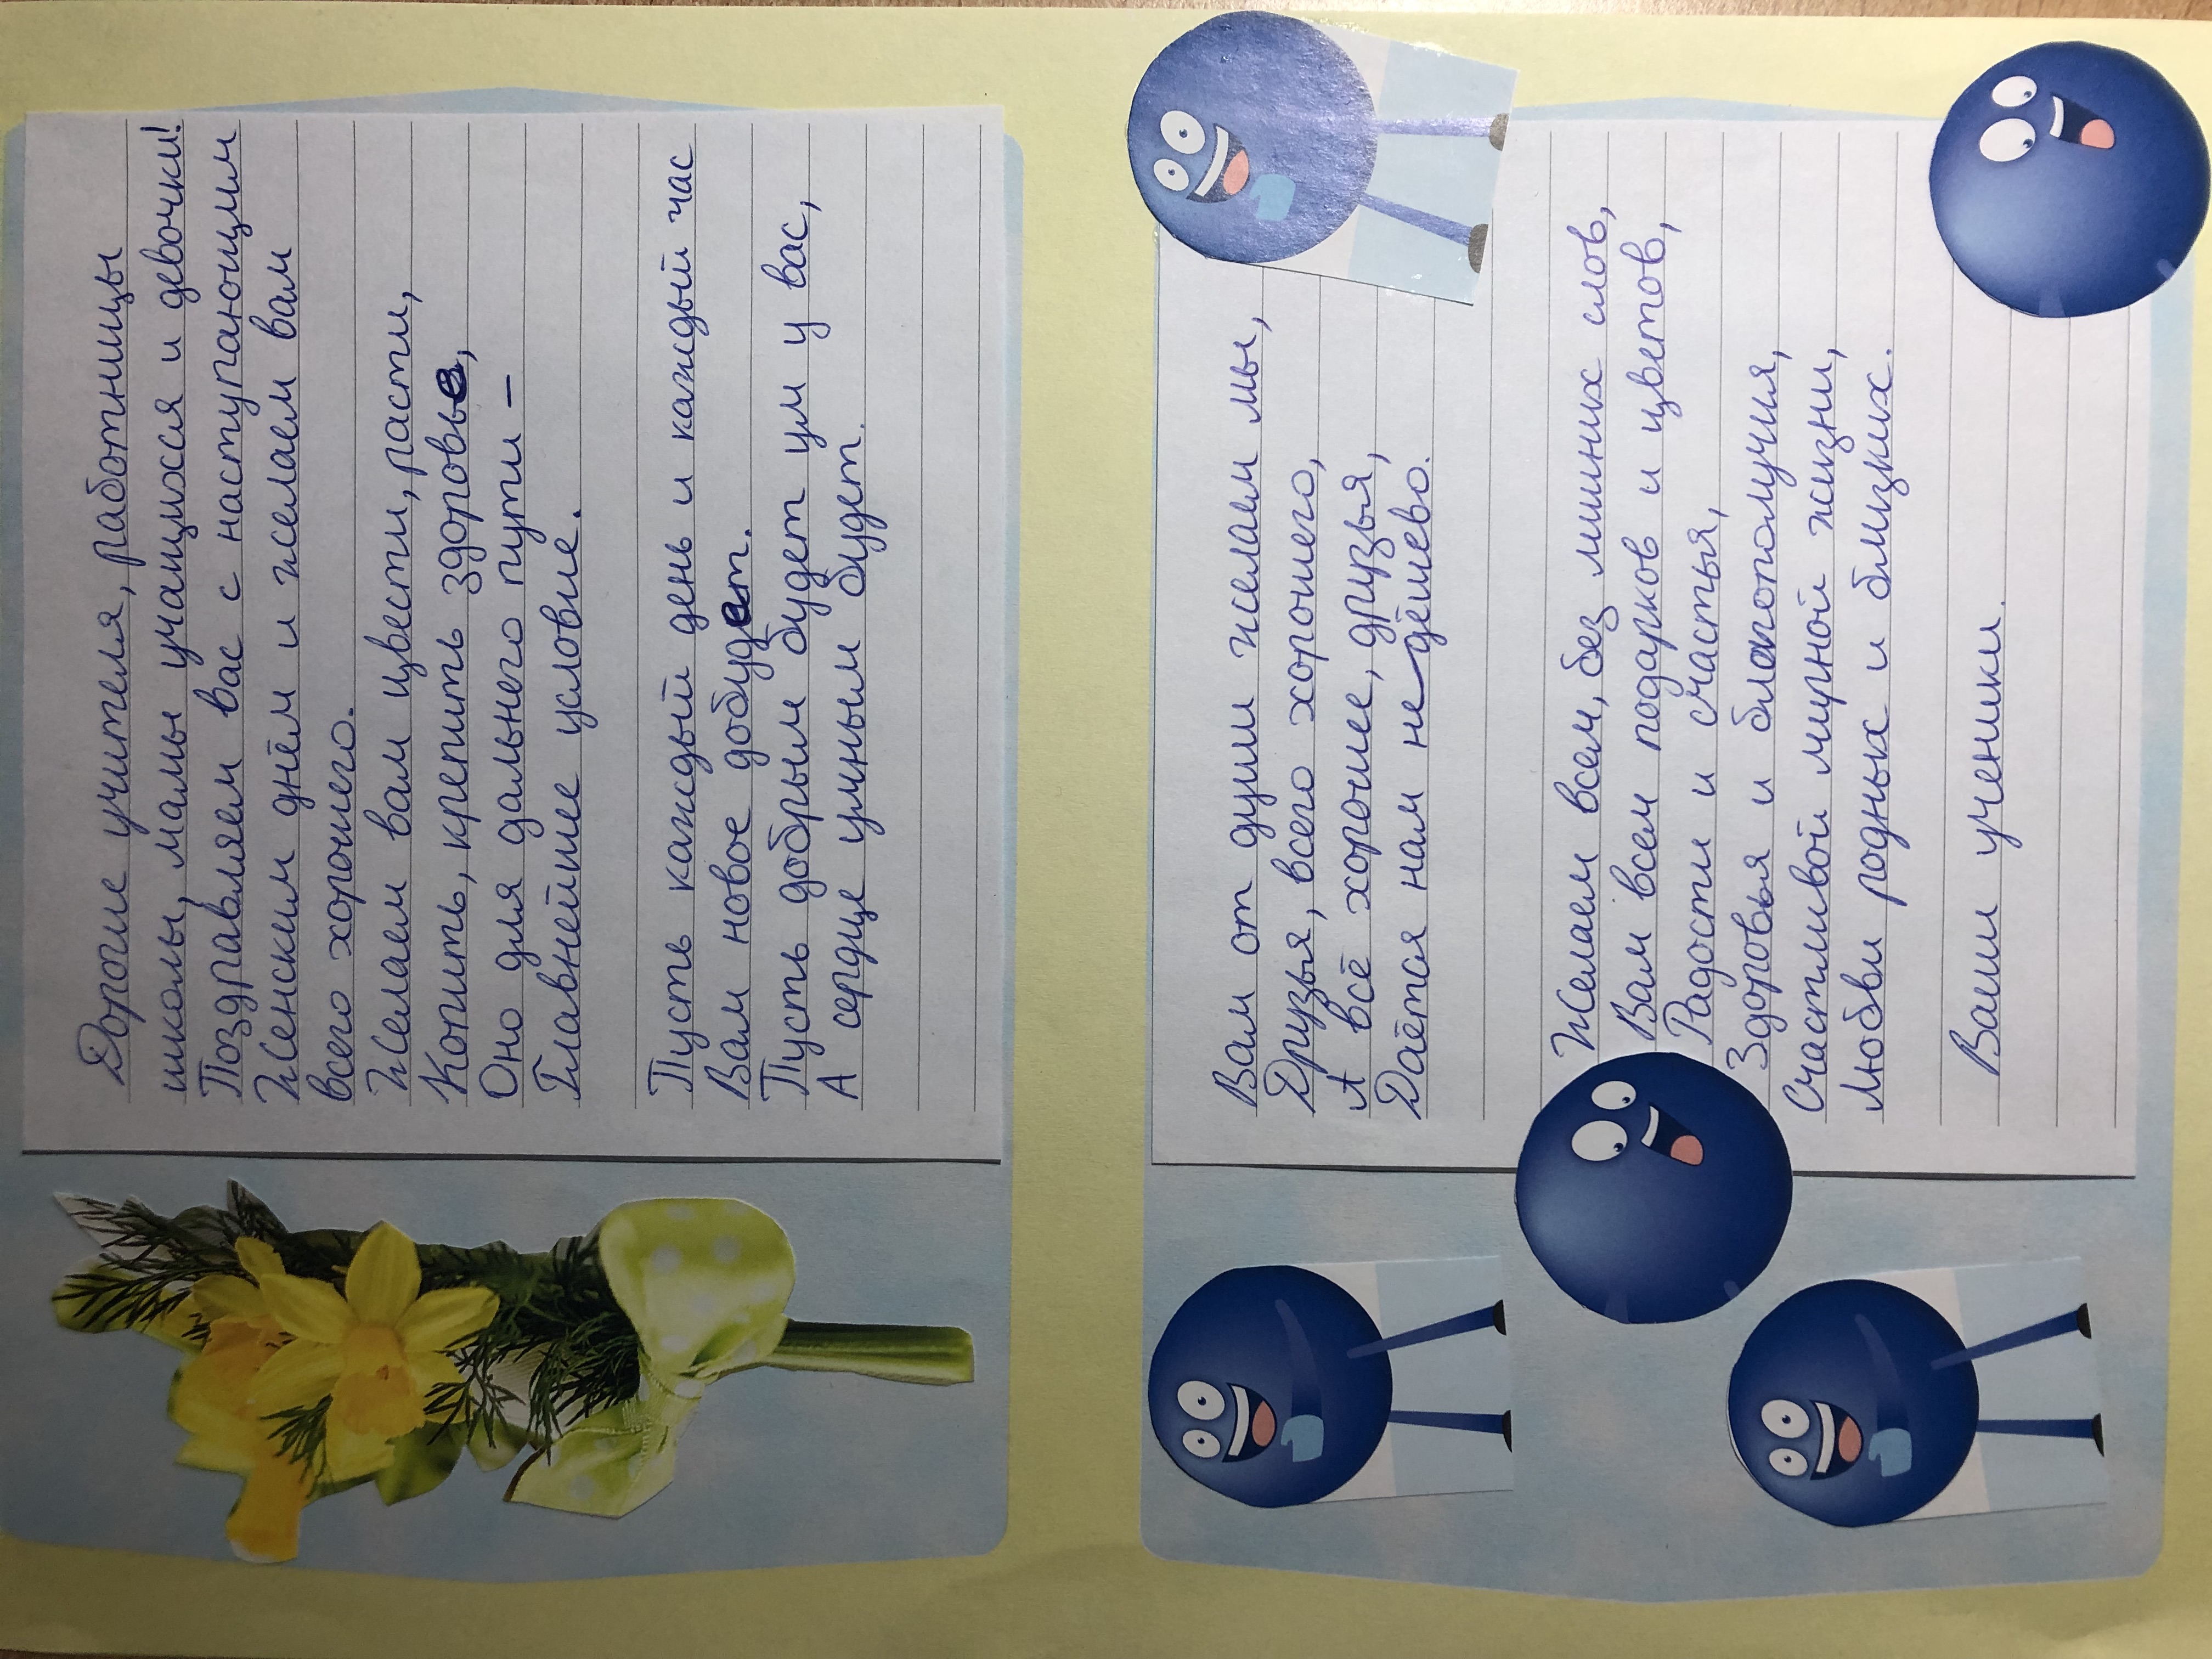 Дорогие учителя, работницы
школы, мамы учащихся и девочки!
Поздравляем вас с наступающим
Женским днём и желаем вам
всего хорошего.
Желаем вам цвести, расти,
Копить, крепить здоровье,
Оно для дальнего пути –
Главнейшее условие.
Пусть каждый день и каждый час
Вам новое добудет.
Пусть добрым будет ум у вас,
А сердце умным будет.
Вам от души желаем мы,
Друзья, всего хорошего,
А всё хорошее, друзья,
Даётся нам не дёшево.
Желаем всем, без лишних слов,
Вам всем подарков и цветов,
Радости и счастья,
Здоровья и благополучия,
Счастливой мирной жизни,
Любви родных и близких.
Ваши ученики.